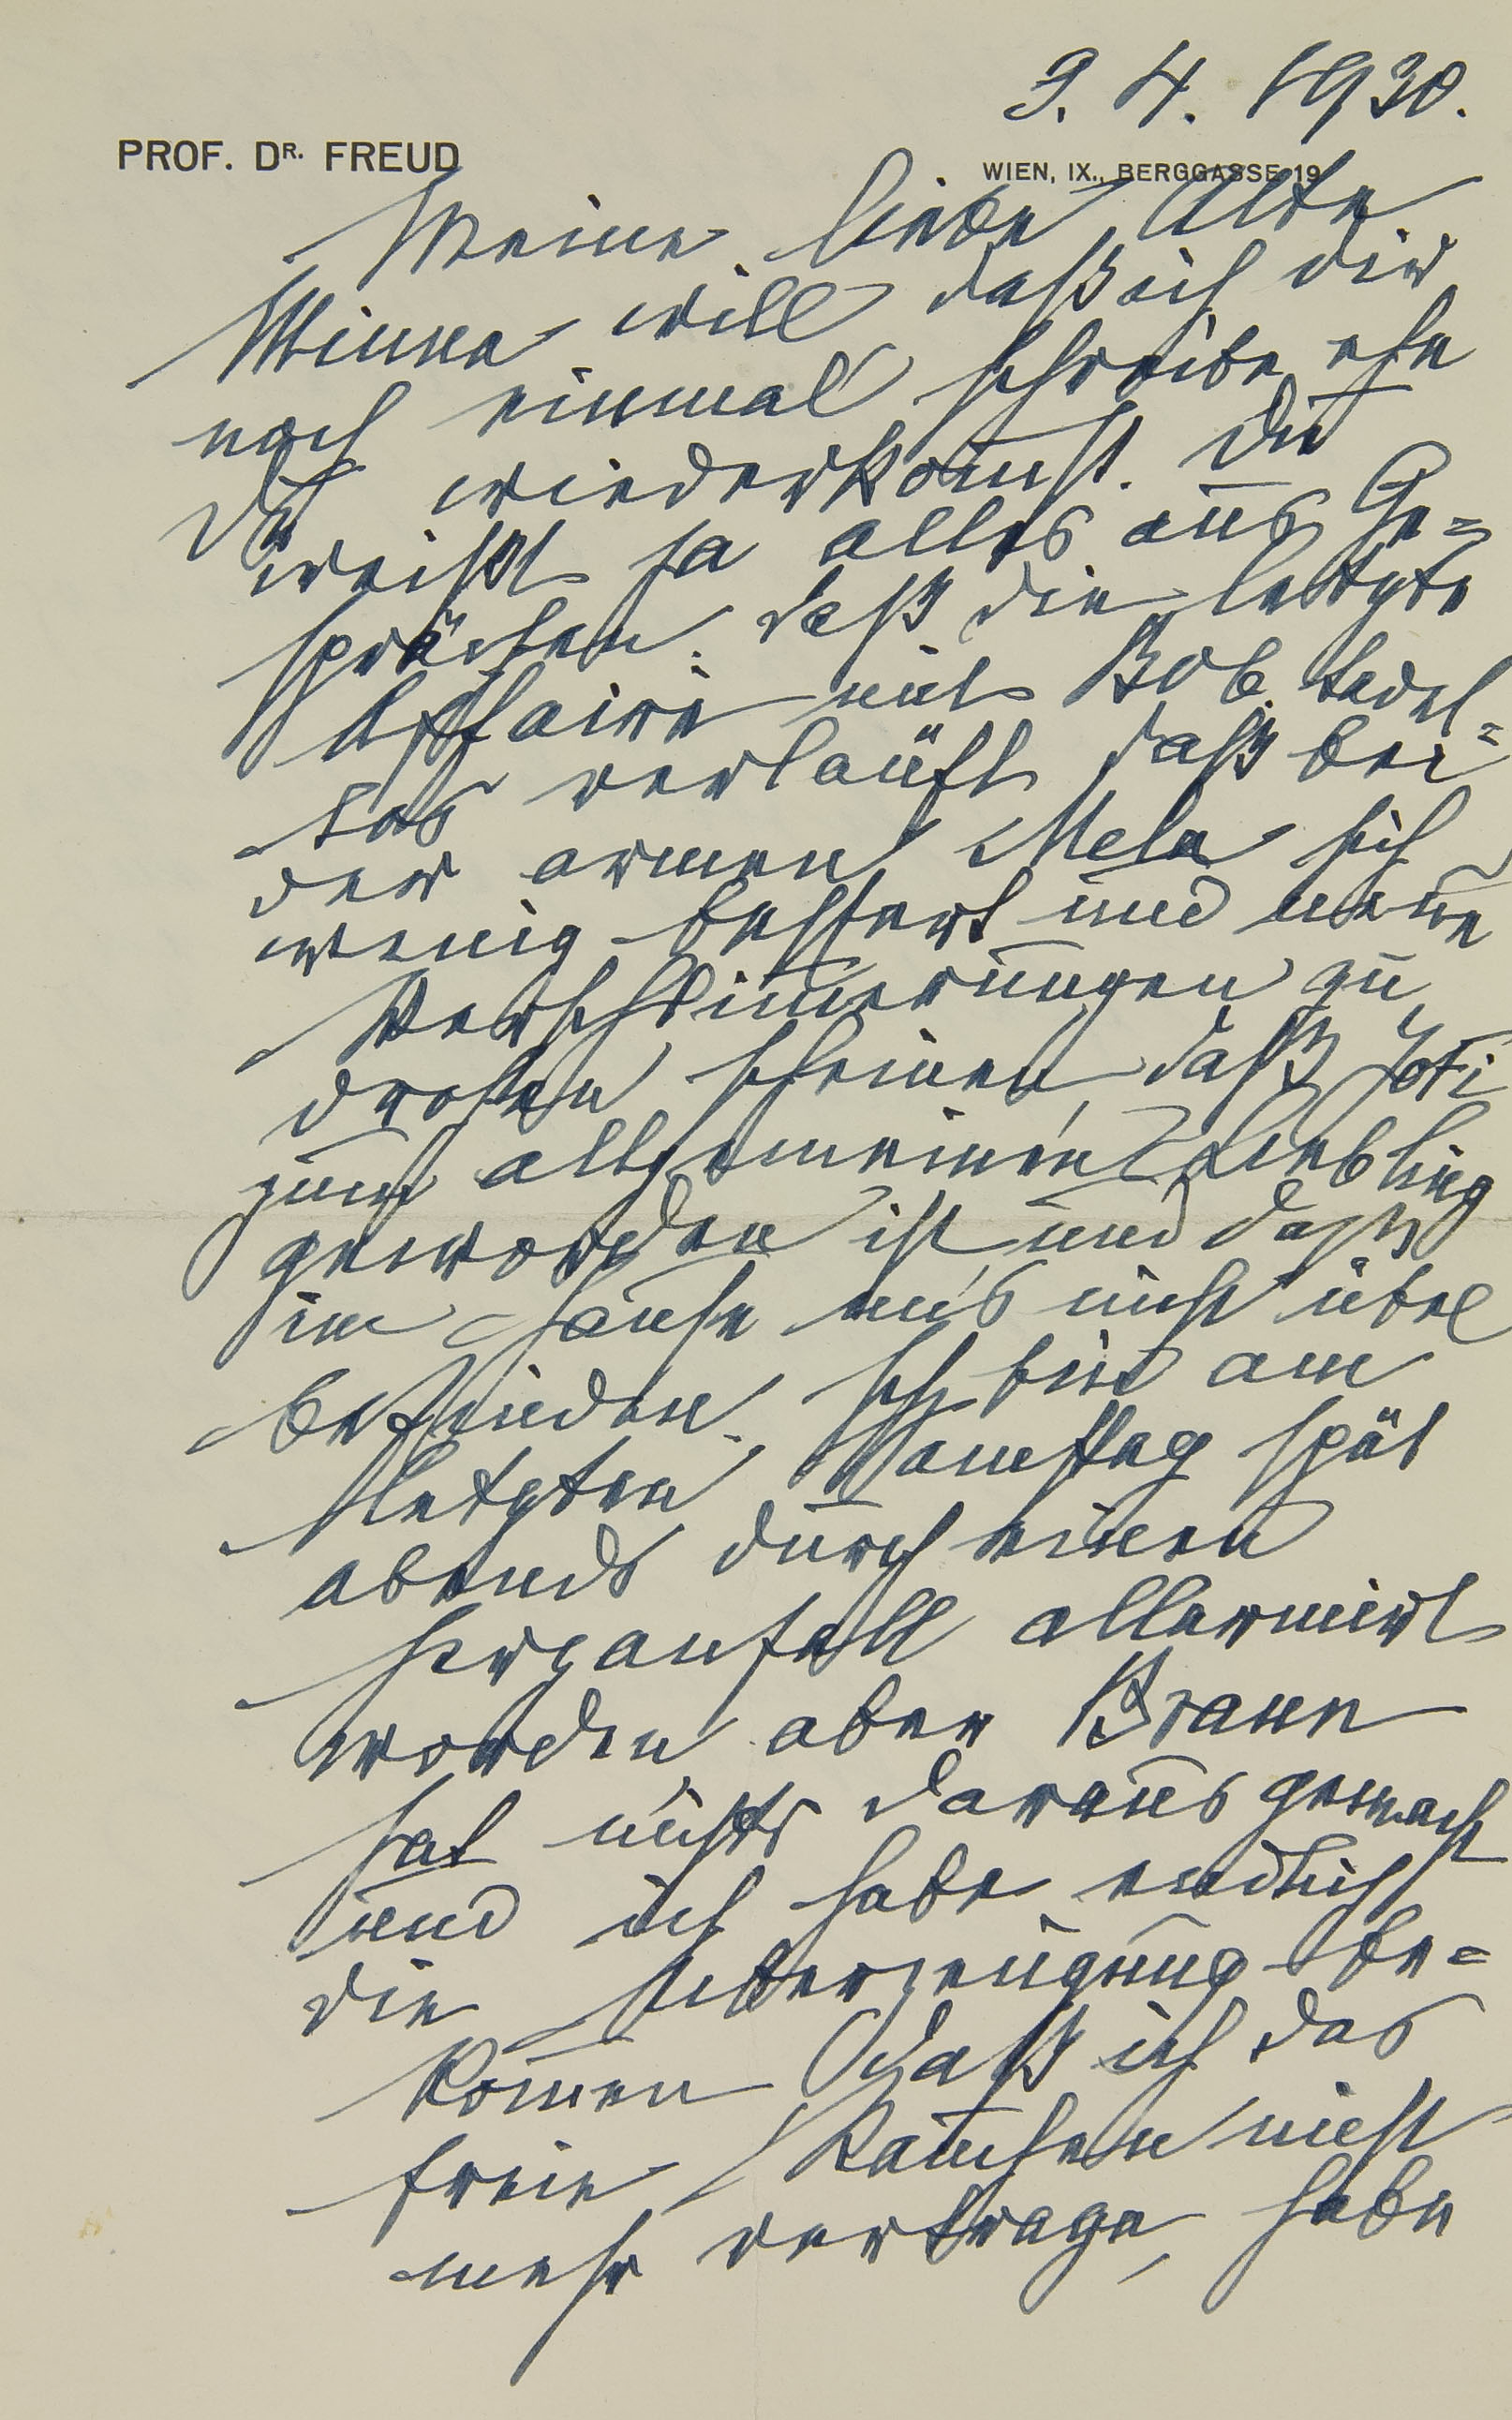 3. 4. 1930.
PROF. DR. FREUD
WIEN, IX., BERGGASSE 19
Meine liebe Alte
Minna will daß ich dir
noch einmal schreibe ehe
Du wiederkom̄st. Du
weißt ja alles aus Ge=
sprächen. daß die letzte
Affaire mit Bob tadel=
los verläuft daß bei
der armen Mela sich
wenig bessert und neue
Verschlim̄erungen zu
drohen scheinen, daß Jofi
zum allgemeinen Liebling
geworden ist und daß
im Hause uns nicht übel
befinden. Ich bin am
letzten Samstag spät
abends durch einen
Herzanfall allarmirt
worden, aber Braun
hat nichts daraus gemacht
und ich habe endlich
die Ueberzeugung be=
kom̄en daß ich das
freie Rauchen nicht
mehr vertrage, habe